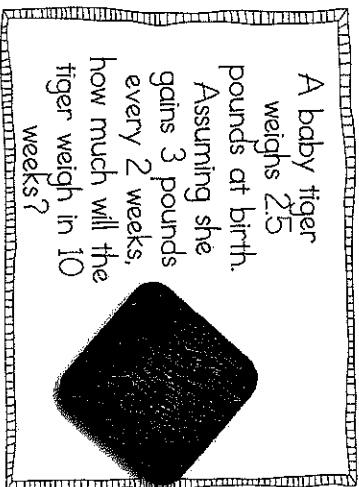 A baby tiger
weighs 2.5
pounds at birth.
Assuming she
gains 3 pounds
every 2 weeks,
how much will the
tiger weigh in 10
weeks?